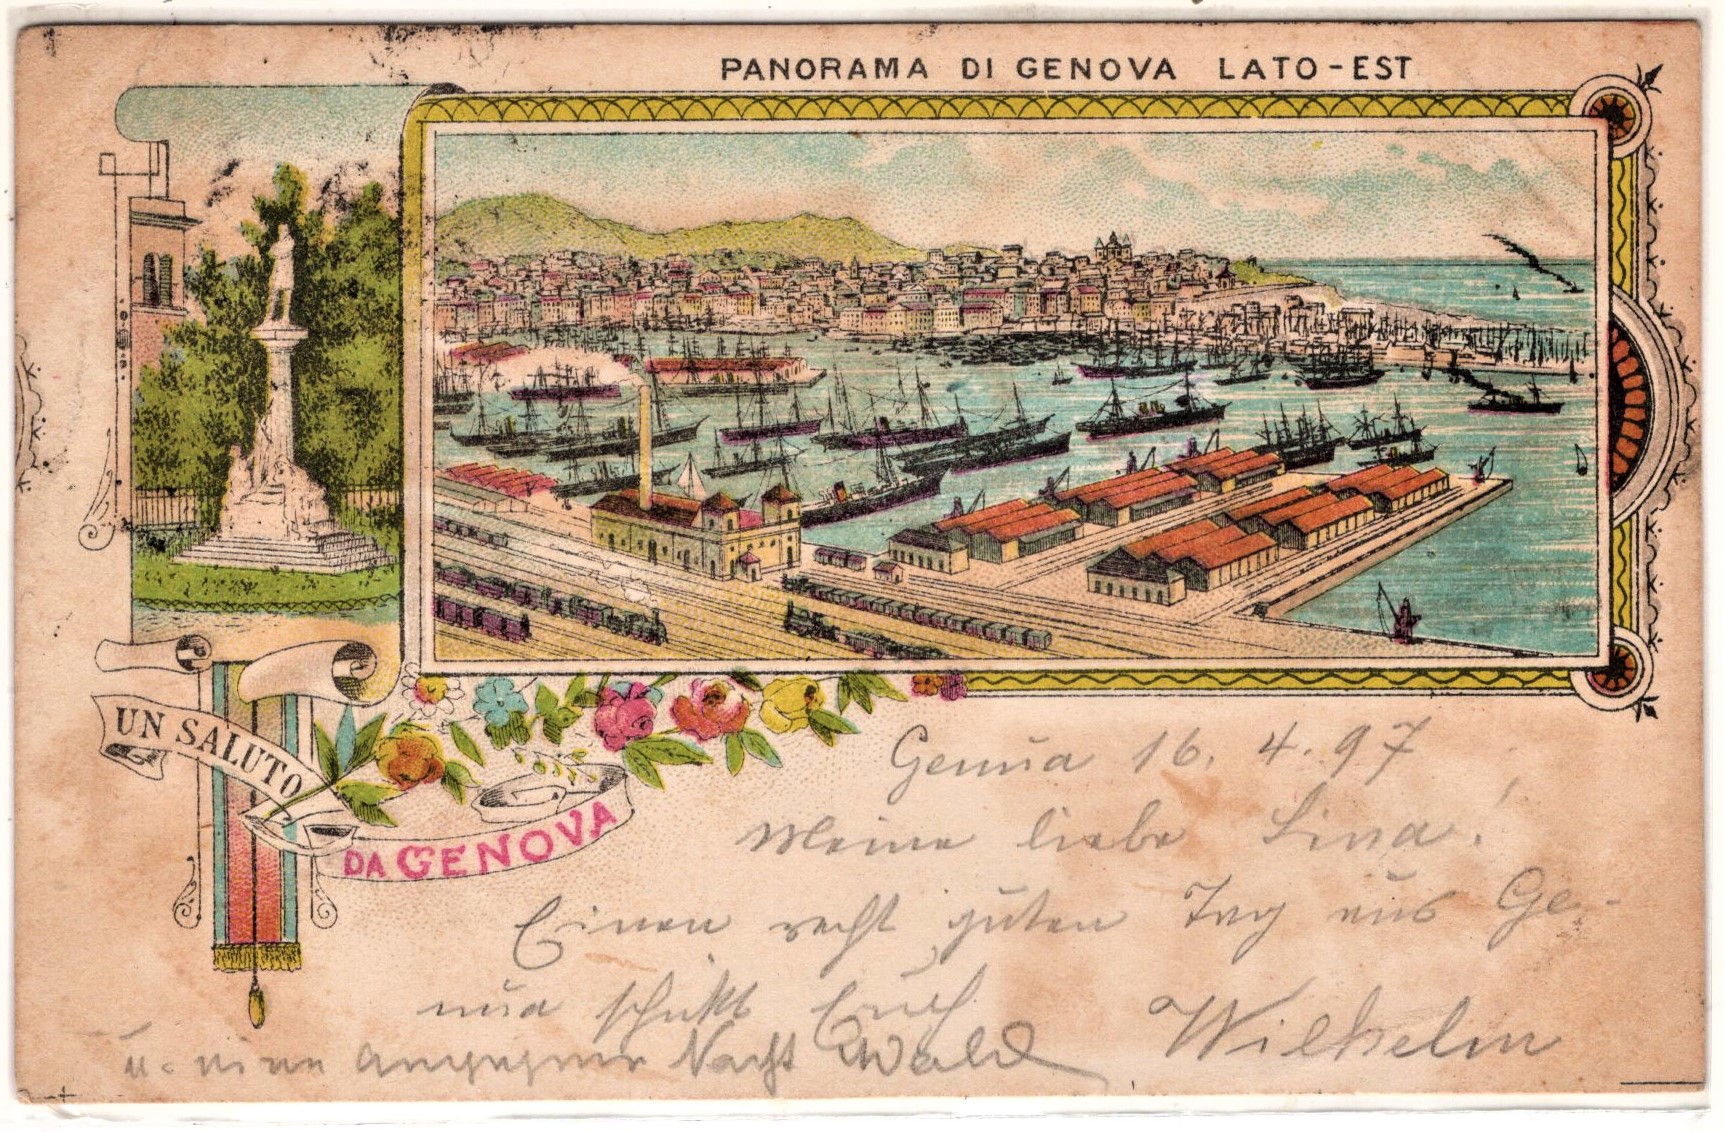 PANORAMA DI GENOVA LATO-EST
UN SALUTO
DA GENOVA
Genua 16. 4. 97
Meine liebe Lina!
Einen recht guten Tag aus Ge-
nua schickt Euch Wilhelm
u. eine Nacht Wald